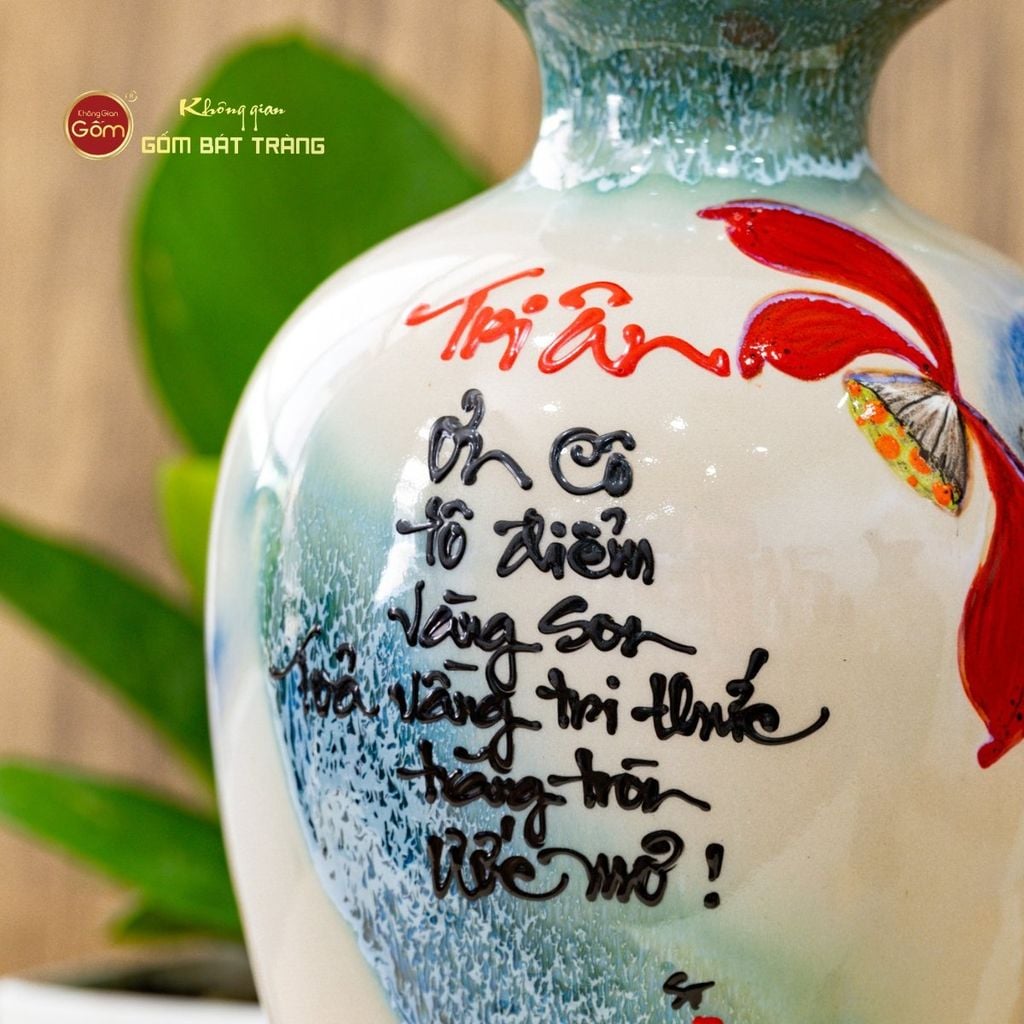 Không Gian
Gốm
®
Không gian
GỐM BÁT TRÀNG
Tri ân
Ơn Cô
tô điểm
vàng son
Toả vầng tri thức
trăng tròn
Ước mơ !